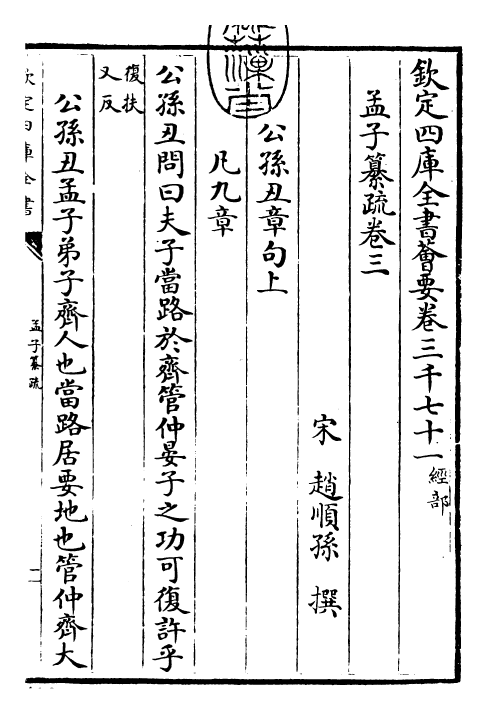 欽定四庫全書薈要卷三千七十一 經部
孟子纂疏卷三
宋 趙順孫 撰
公孫丑章句上
凡九章
公孫丑問曰夫子當路於齊管仲晏子之功可復許乎
復扶又反
公孫丑孟子弟子齊人也當路居要地也管仲齊大
欽定四庫全書
孟子纂疏